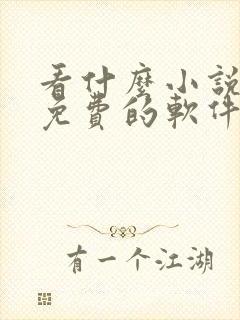 看什麼小說
免費的軟件
有一个江湖